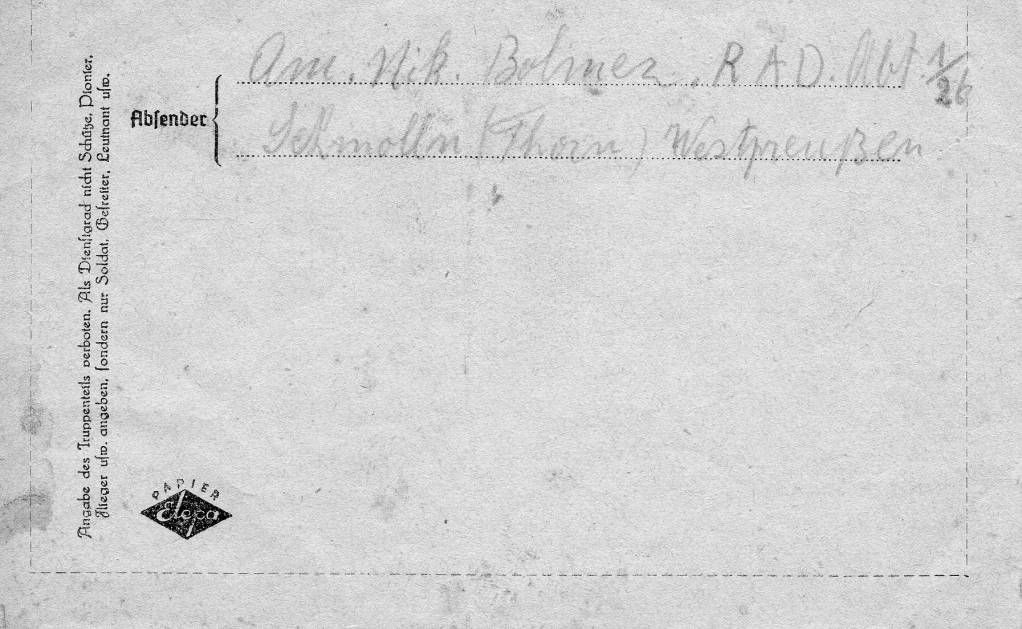 Am. Nik. Bolmer, R A D. Abt. 1/26
Absender
Schmolln (Thorn) Westpreußen
Angabe des Truppenteils verboten. Als Dienstgrad nicht Schütze, Pionier,
Flieger usw. angeben, sondern nur Soldat, Gefreiter, Leutnant usw.
PAPIER
Elepa